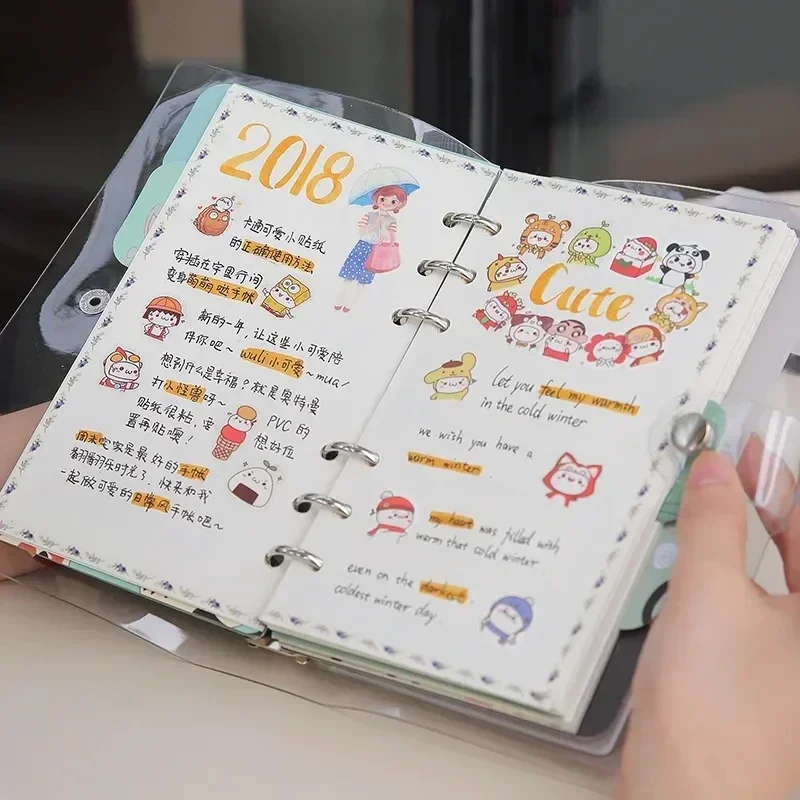 2018
卡通可爱小贴纸
的正确使用方法
穿插在字里行间
变身萌萌哒手帐
新的一年,让这些小可爱陪
伴你吧~wuli小可爱~mua/
想到什么是幸福?就是奥特曼
打小怪兽呀~
贴纸很粘,要 PVC的
置再贴噢! 想好位
周末宅家是最好的手帐
翻翻翻乐时光了,快来和我
一起做可爱的日常风手帐吧~
Cute
let you feel my warmth
in the cold winter
we wish you have a
warm winter
my heart was filled with
warm that cold winter
even on the darkest,
coldest winter day.